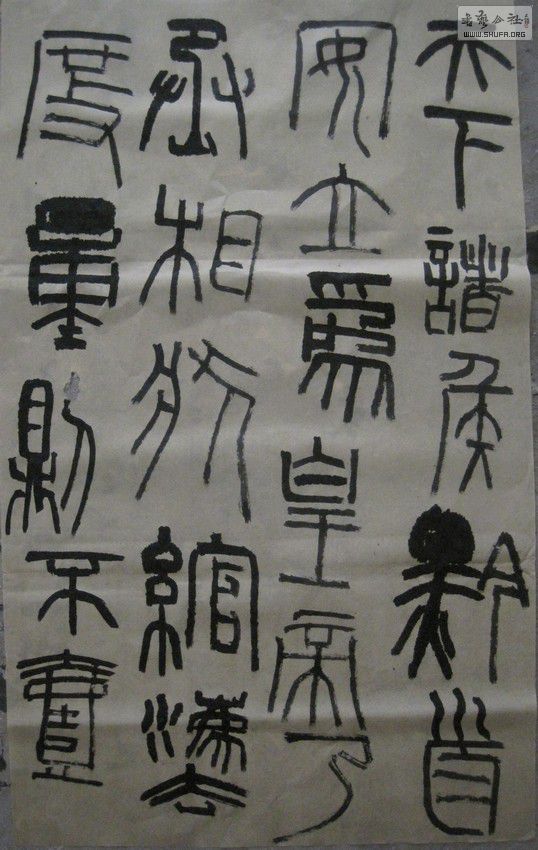 天下諸侯黔首
安立為皇帝乃
丞相狀綰灋
度量則不壹
书艺公社
WWW.SHUFA.ORG